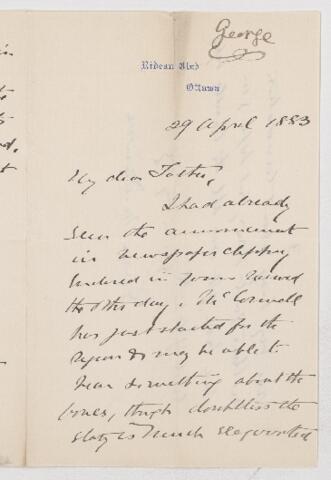 George
Rideau Club
Ottawa
29 April 1883
My dear Father,
I had already
seen the announcement
in newspaper clipping
enclosed in yours received
the other day, Mr Connell
has just started for the
region & may be able to
hear something about the
bones, though doubtless the
story is much exaggerated